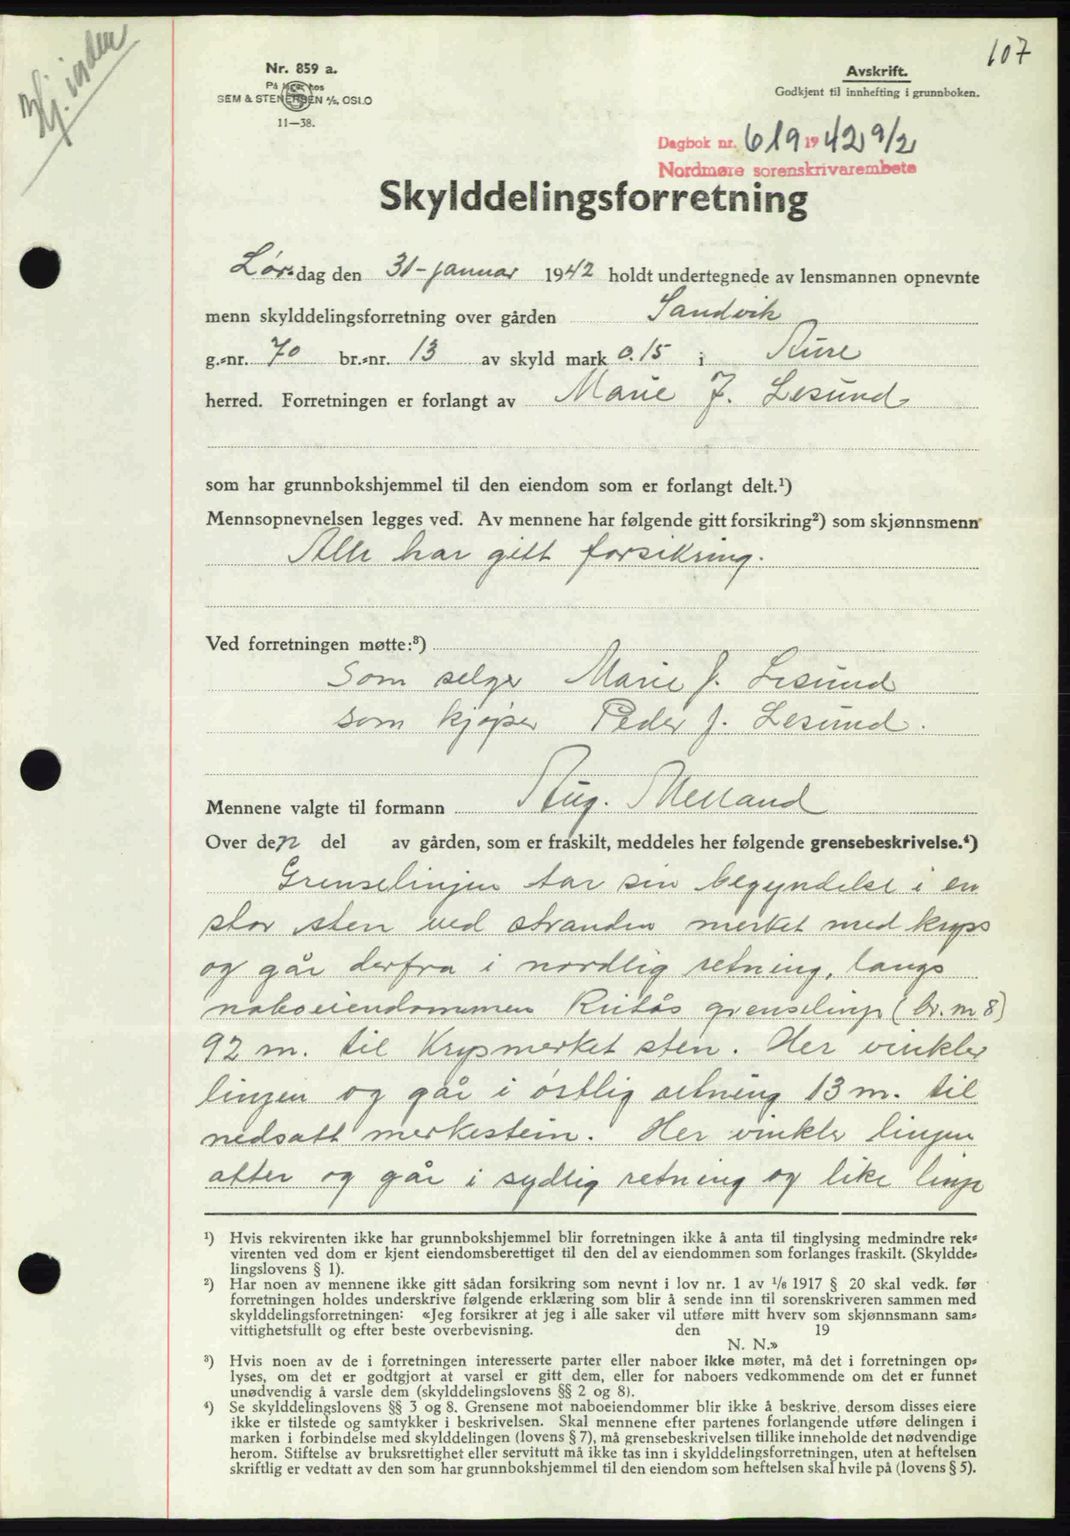 107
Nr. 859 a.
På lager hos
SEM & STENERSEN A/S, OSLO
11-38.
Avskrift.
Godkjent til innhefting i grunnboken.
Dagbok nr. 619 1942 9/2
Nordmøre sorenskrivarembete
Skylddelingsforretning
Lørdag den 31-januar 1942 holdt undertegnede av lensmannen opnevnte
menn skylddelingsforretning over gården Sandvik
g.-nr. 70 br.-nr. 13 av skyld mark 0.15 i Aure
herred. Forretningen er forlangt av Marie J. Lesund
som har grunnbokshjemmel til den eiendom som er forlangt delt.¹)
Mennsopnevnelsen legges ved. Av mennene har følgende gitt forsikring²) som skjønnsmenn
Alle har gitt forsikring.
Ved forretningen møtte:³)
Som selger Marie J. Lesund
som kjøper Peder J. Lesund.
Mennene valgte til formann Aug. Melland
Over den del av gården, som er fraskilt, meddeles her følgende grensebeskrivelse.⁴)
Grenselinjen tar sin begyndelse i en
stor sten ved stranden merket med kryss
og går derfra i nordlig retning, langs
naboeiendommen grenselinje (br. nr 8)
92 m. til Krysmerket sten. Her vinkler
linjen og går i østlig retning 13 m. til
nedsatt merkestein. Her vinkler linjen
atter og går i sydlig retning og like linje
¹) Hvis rekvirenten ikke har grunnbokshjemmel blir forretningen ikke å anta til tinglysing medmindre rek-
virenten ved dom er kjent eiendomsberettiget til den del av eiendommen som forlanges fraskilt. (Skyldde-
lingslovens § 1).
²) Har noen av mennene ikke gitt sådan forsikring som nevnt i lov nr. 1 av 1/6 1917 § 20 skal vedk. før
forretningen holdes underskrive følgende erklæring som blir å sende inn til sorenskriveren sammen med
skylddelingsforretningen: «Jeg forsikrer at jeg i alle saker vil utføre mitt hverv som skjønnsmann sam-
vittighetsfullt og efter beste overbevisning. den 19
N. N.»
³) Hvis noen av de i forretningen interesserte parter eller naboer ikke møter, må det i forretningen op-
lyses, om det er godtgjort at varsel er gitt dem, eller for naboers vedkommende om det er funnet
unødvendig å varsle dem (skylddelingslovens §§ 2 og 8).
⁴) Se skylddelingslovens §§ 3 og 8. Grensene mot naboeiendommer blir ikke å beskrive, dersom disses eiere
ikke er tilstede og samtykker i beskrivelsen. Skal mennene efter partenes forlangende utføre delingen i
marken i forbindelse med skylddelingen (lovens § 7), må grensebeskrivelsen tillike inneholde det nødvendige
herom. Stiftelse av bruksrettighet eller servitutt må ikke tas inn i skylddelingsforretningen, uten at heftelsen
skriftlig er vedtatt av den som har grunnbokshjemmel til den eiendom som heftelsen skal hvile på (lovens § 5).